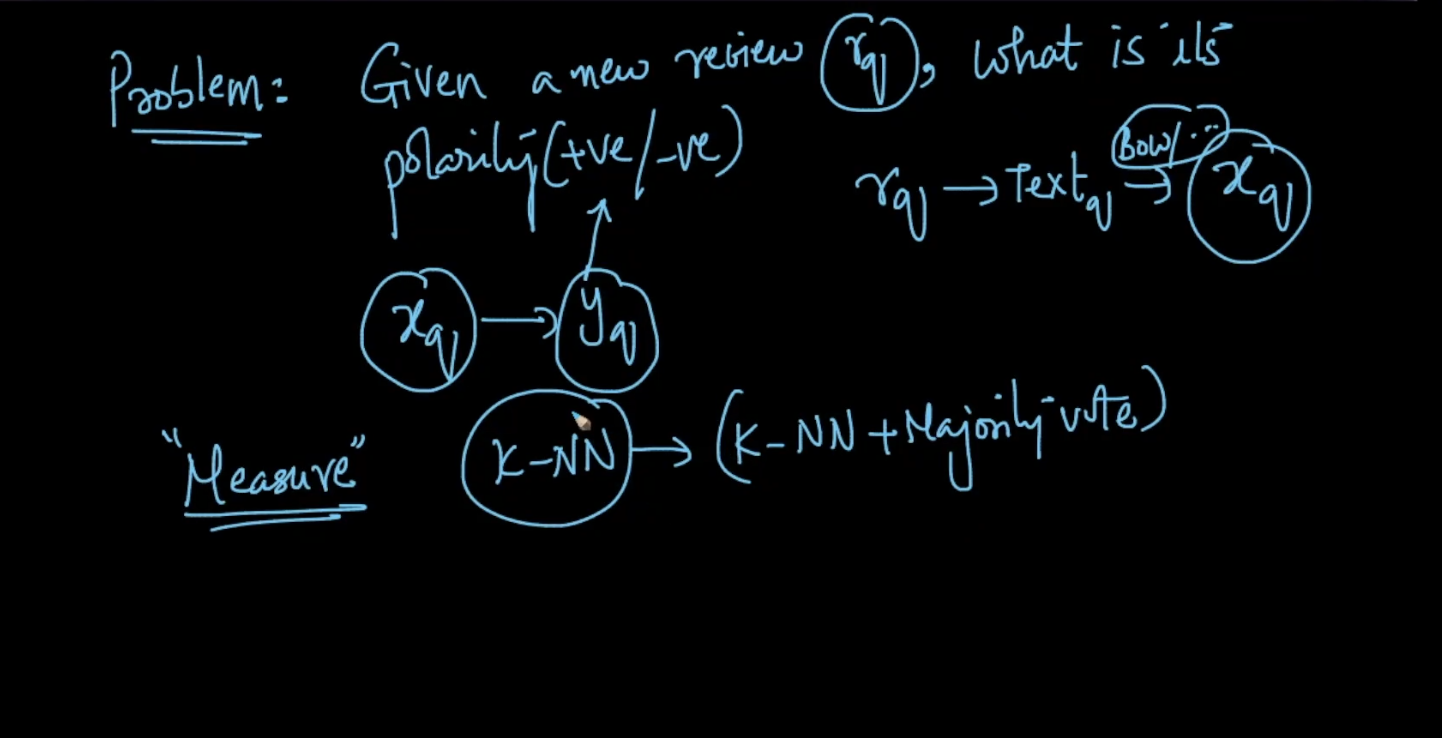 Problem: Given a new review rq, what is its
polarity (+ve/-ve)
BOW/...
rq → Textq → xq
xq → yq
"Measure" K-NN → (K-NN + Majority vote)